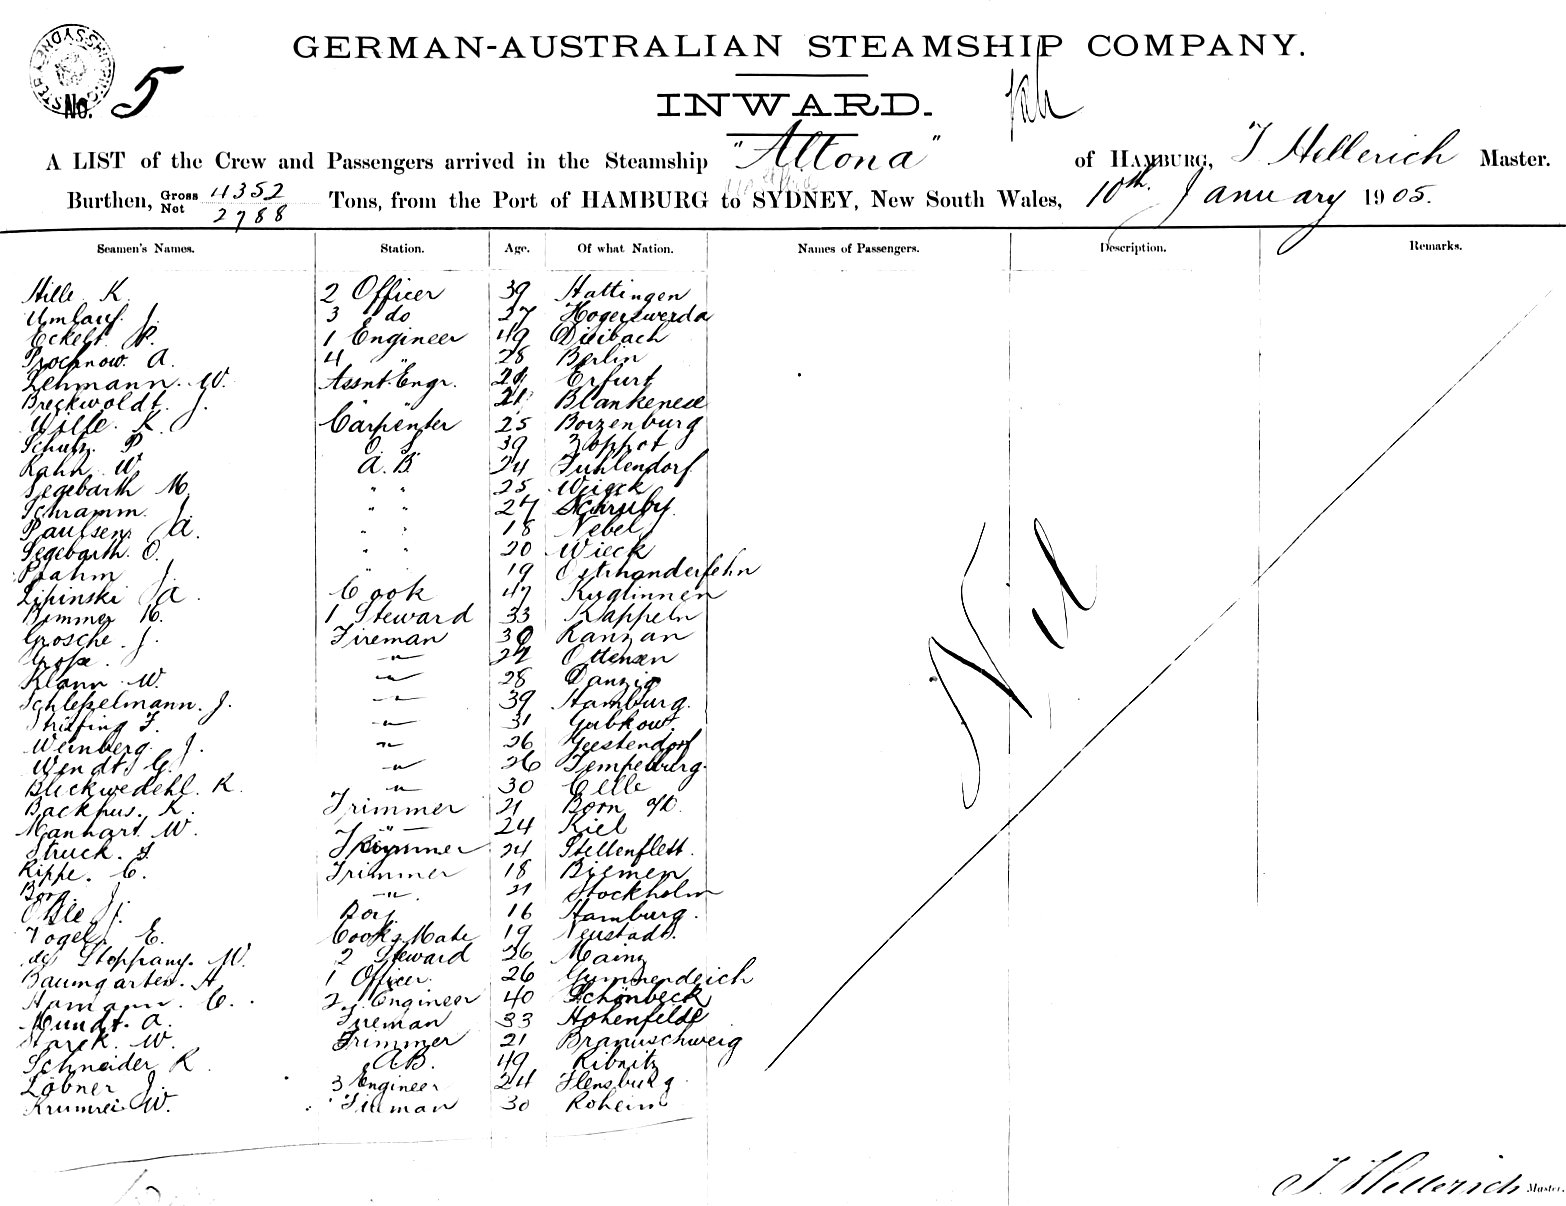 GERMAN-AUSTRALIAN STEAMSHIP COMPANY.
No. 5
INWARD.
A LIST of the Crew and Passengers arrived in the Steamship "Altona" of HAMBURG, J Hellerich Master.
Burthen, Gross 4352 Tons, from the Port of HAMBURG to SYDNEY, New South Wales, 10th. January 1905.
Net 2788
Seamen's Names. Station. Age. Of what Nation. Names of Passengers. Description. Remarks.
Hille K. 2 Officer 39 Hattingen
Umlauf J. 3 do 27 Hogerswerda
Eckelt P. 1 Engineer 49 Dieibach
Prochnow A. 4 " 28 Berlin
Lehmann W. Assnt Engr. Erfurt
Breckwoldt J. " " Blankenese
Wille K. Carpenter 25 Boizenburg
Schutz P O. S 39 Zoppot
Rahn W. A. B 24 Fuhlendorf
Segebarth M. " " 25 Wieck
Schramm J. " " 27
Paulsen A. " " 18 Nebel
Segebarth O. " " 20 Wieck
Prahm J. " 19 Ostrhanderfehn
Lipinski A. Cook 47 Kuglinnen
Bimmer 1 Steward 33 Kappeln
Grosche J. Fireman Ranzan
Grosse " Ottensen
Klann W. " 28 Danzig
Schlesselmann J. " 39 Hamburg.
Strüfing F. " 31 Gubkow.
Weinberg J. " 26 Geestendorf
Wendt G. " 26 Tempelburg.
Blickwedehl K. " 30 Celle
Backhus. K. Trimmer 21 Born a/D.
Manhart W. " 24 Kiel
Struck. F. Trimmer 24 Stellenflett.
Rippe. C. Trimmer 18 Bremen
Borg J. " 21 Stockholm
J. Boy 16 Hamburg.
Vogel E. Cooks Mate 19 Neustadt.
des Stoppany. W. 2 Steward 26 Mainz
Baumgarten. A 1 Officer. 26 Gummerdeich
Hamann C. 2 Engineer 40 Schönbeck
Mundt A. Fireman 33 Hohenfelde
Starck W. Trimmer 21 Braunschweig
Schneider R A.B. 49 Ribnitz
Löbner J. 3 Engineer 24 Flensburg
Krumrei W. Fireman 30 Roheim
Nil
J. Hellerich Master.